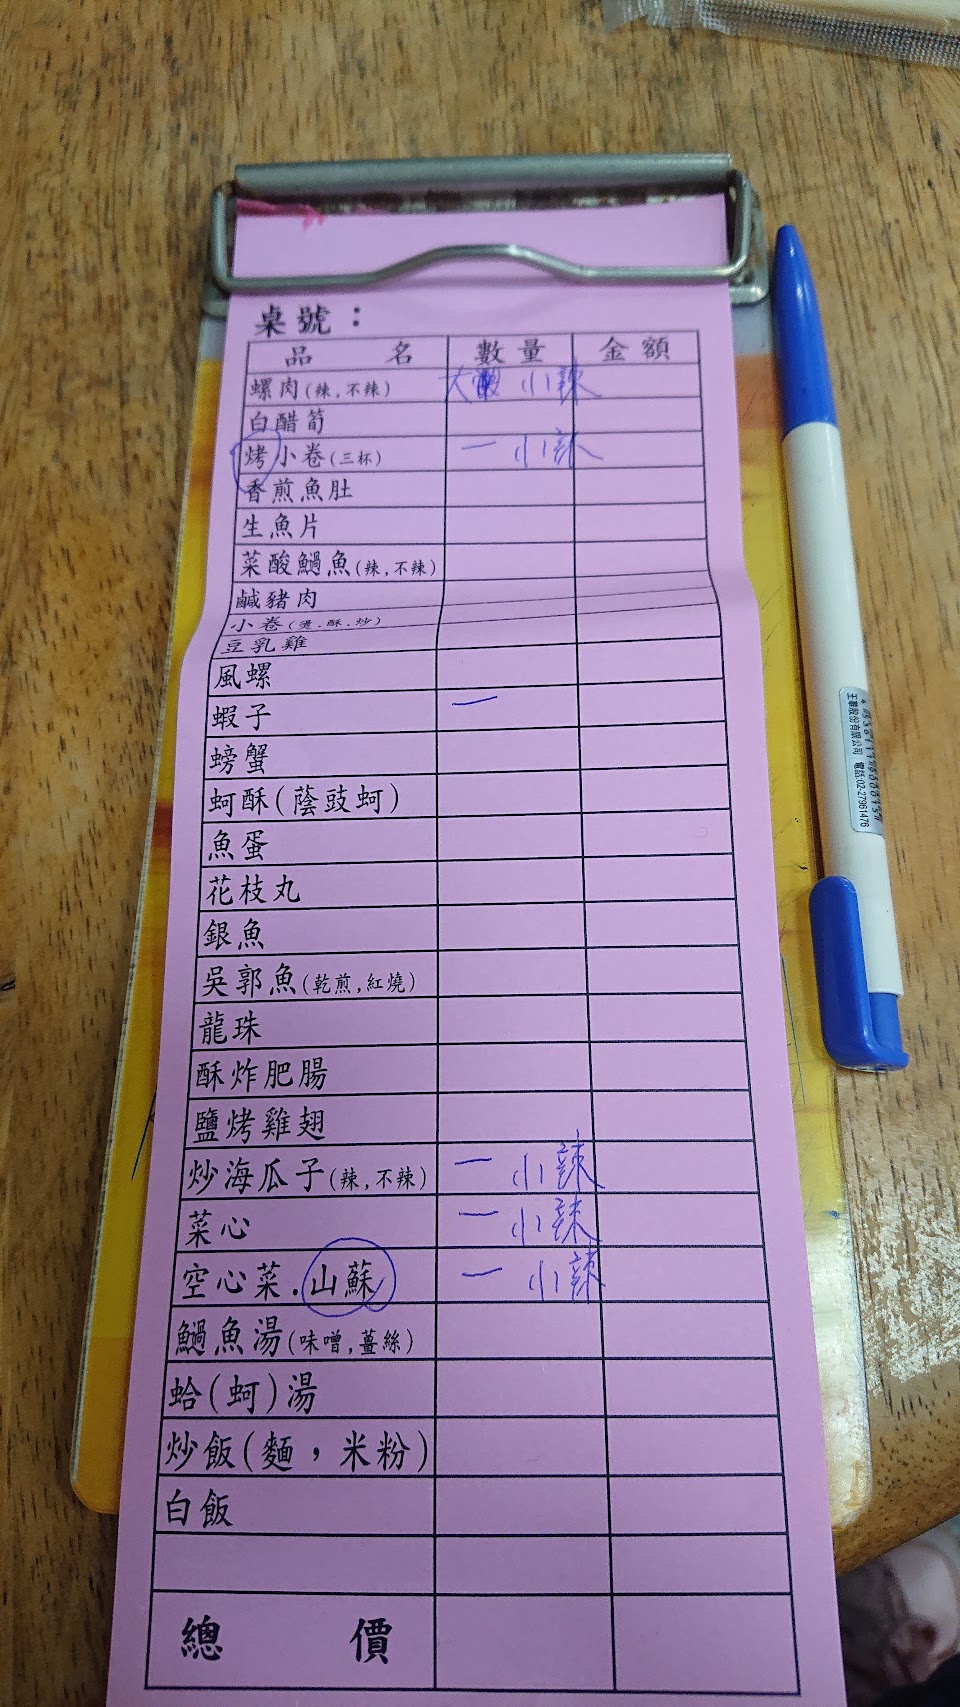 桌號：
品名 數量 金額
螺肉(辣,不辣) 大 小辣
白醋筍
烤小卷(三杯) 一 小辣
香煎魚肚
生魚片
菜酸鯃魚(辣,不辣)
鹹豬肉
小卷(燙.酥.炒)
豆乳雞
風螺
蝦子 一
螃蟹
蚵酥(蔭豉蚵)
魚蛋
花枝丸
銀魚
吳郭魚(乾煎,紅燒)
龍珠
酥炸肥腸
鹽烤雞翅
炒海瓜子(辣,不辣) 一 小辣
菜心 一 小辣
空心菜.山蘇 一 小辣
魚湯(味噌,薑絲)
蛤(蚵)湯
炒飯(麵，米粉)
白飯
總價
王華股份有限公司 電話:02-27961476